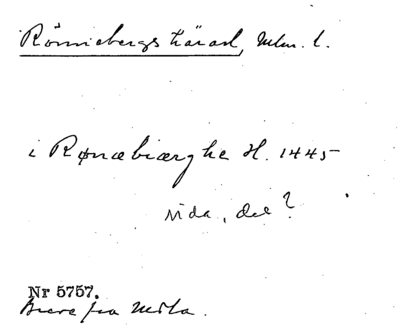 Rönnebergs härad, Mlm. l.
i Rønæbiærghe H. 1445
vida, del?
Nr 5757.
Breve fra